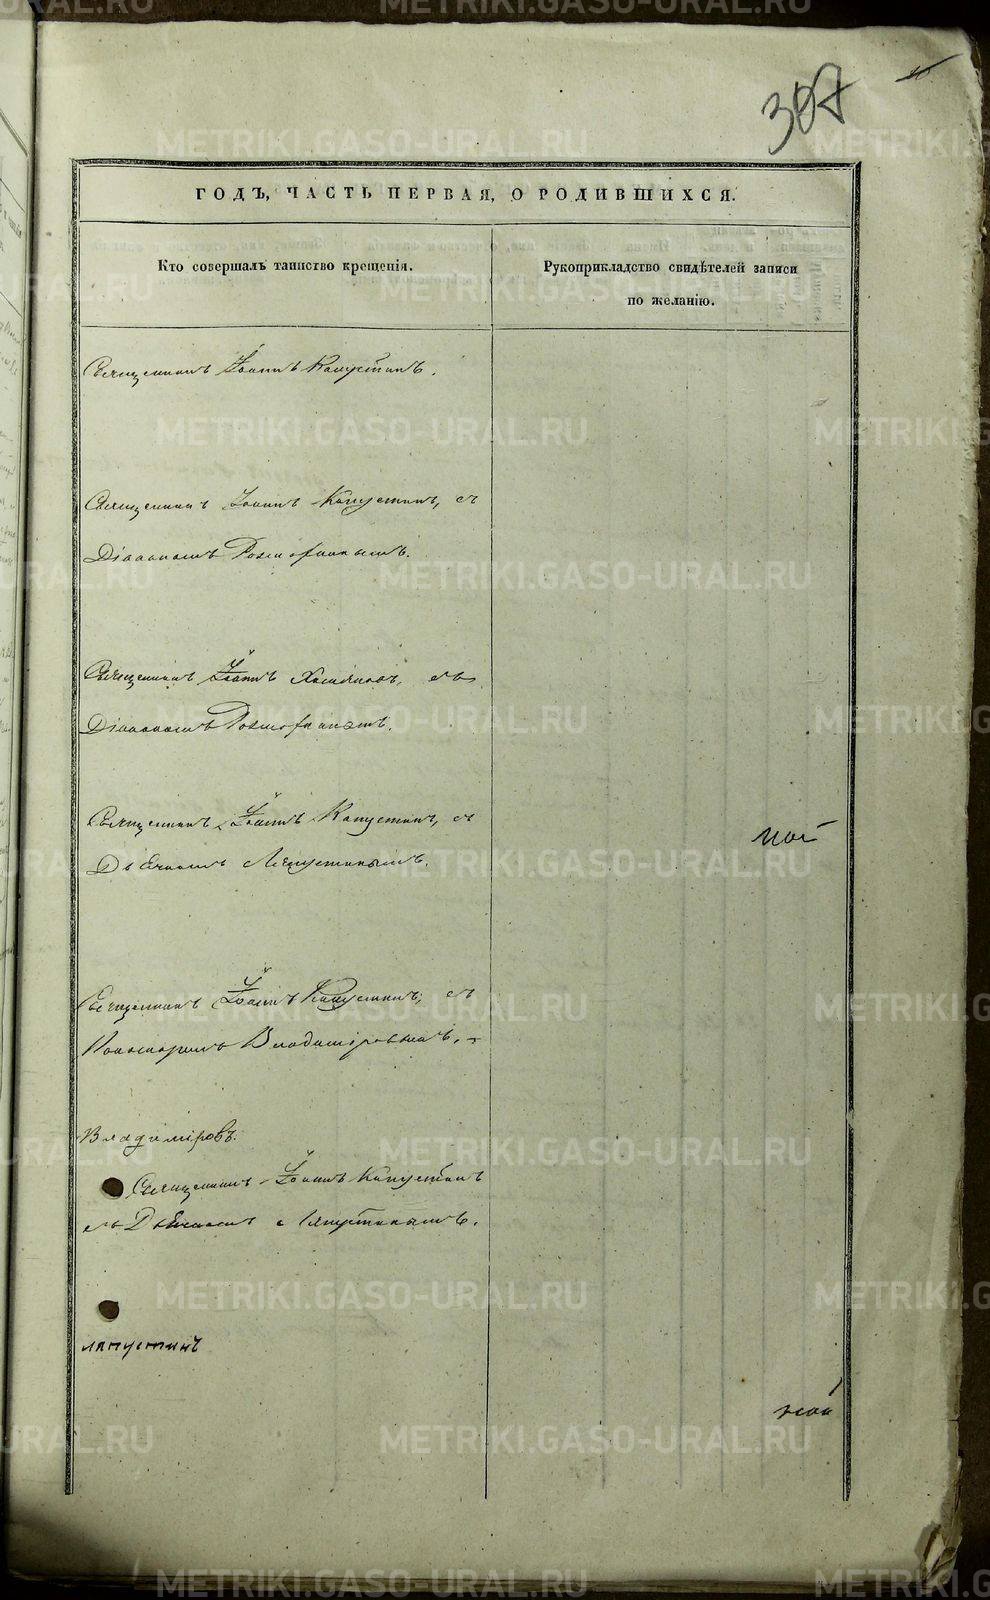 307
ГОДЪ, ЧАСТЬ ПЕРВАЯ, О РОДИВШИХСЯ.
Кто совершалъ таинство крещенія.
Рукоприкладство свидѣтелей записи
по желанію.
Священникъ Іоаннъ Капустинъ.
Священникъ Іоаннъ Капустинъ, съ
Діакономъ
Священникъ Іоаннъ Хомяковъ, съ
Діакономъ
Священникъ Іоаннъ Капустинъ, съ
Дьячкомъ Ляпустинымъ.
Священникъ Іоаннъ Капустинъ, съ
Пономаремъ Владиміровымъ.
Владиміровъ.
Священникъ Іоаннъ Капустинъ
съ Дьячкомъ Ляпустинымъ.
Ляпустинъ
METRIKI.GASO-URAL.RU